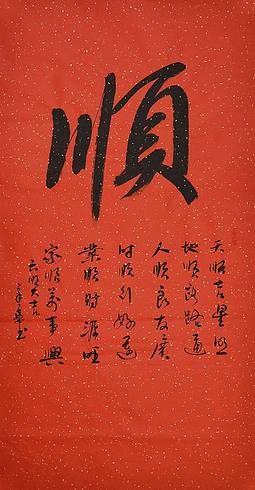 順
天順吉星照
地順路路通
人順良友廣
时順好運
業順財源旺
家順萬事興
六順大吉